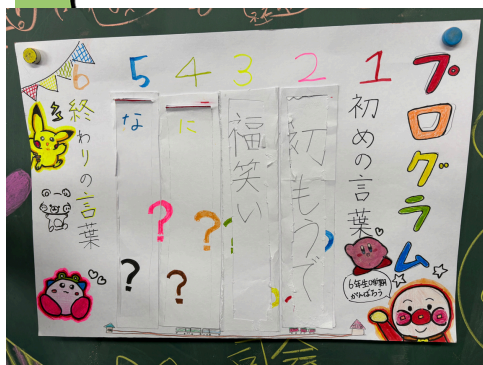 プログラム
1
初めの言葉
2
初もうで
3
福笑い
4
に
??
5
な
??
6
終わりの言葉
6年生0学期
がんばろう